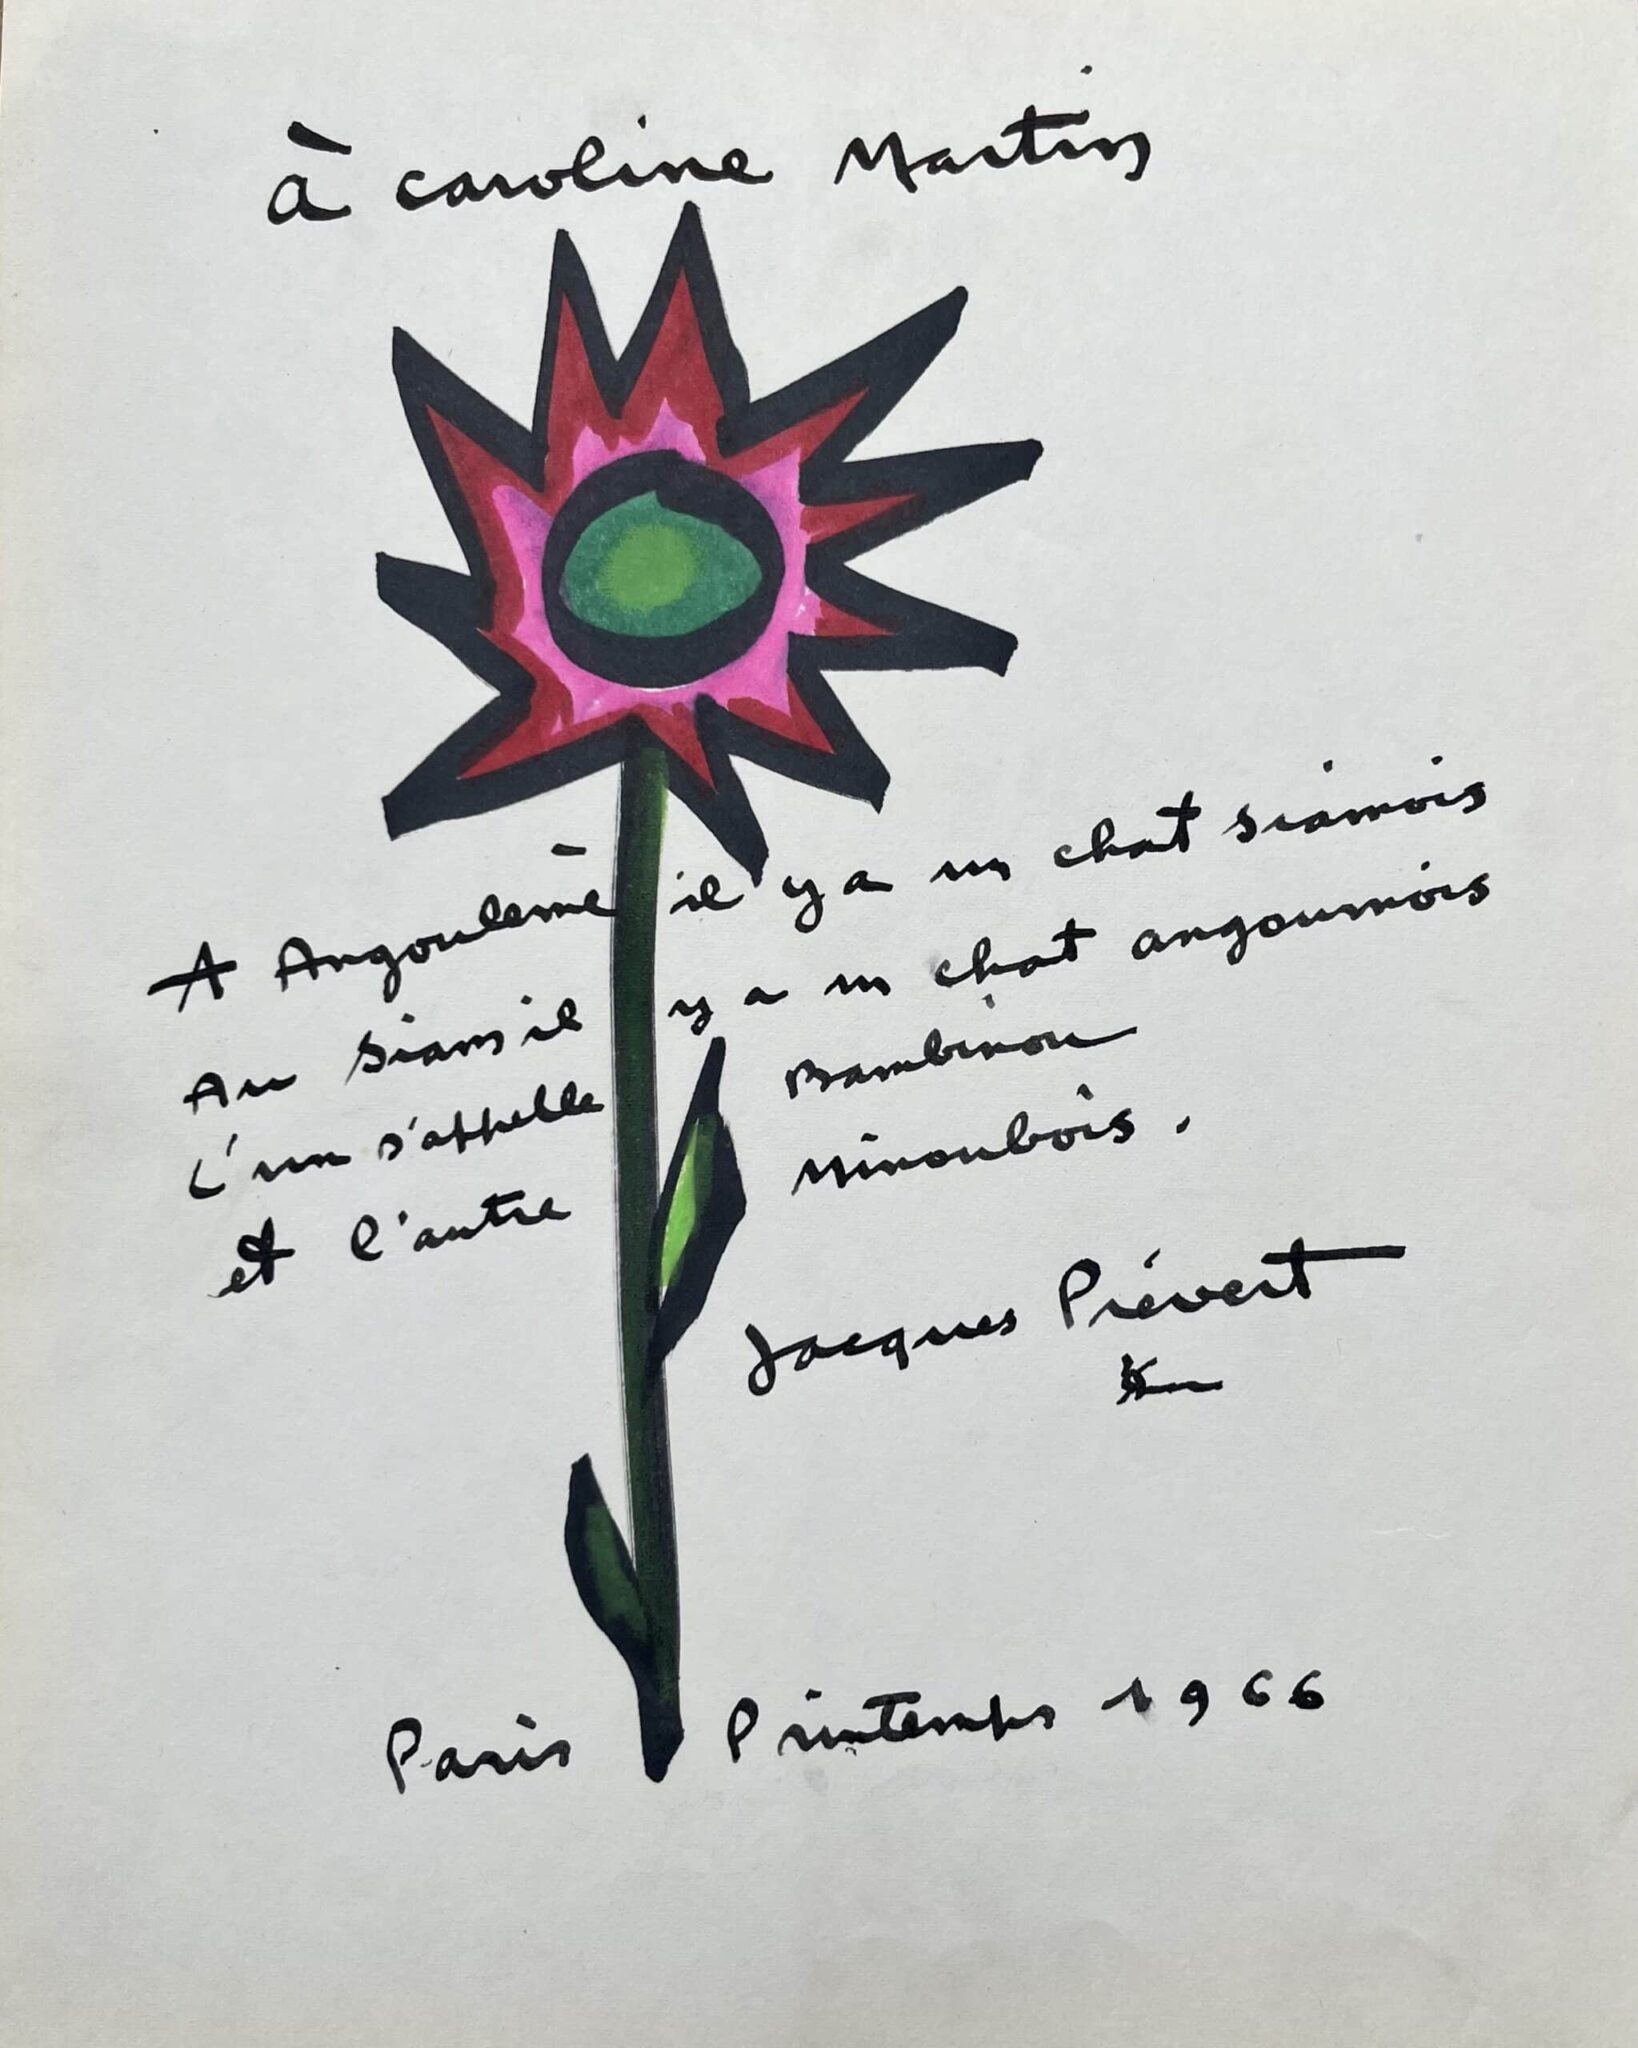 à caroline Martin
A Angoulême il y a un chat siamois
Au Siam il y a un chat angoumois
L'un s'appelle Bambinou
et l'autre Minoubois.
Jacques Prévert
Paris Printemps 1966